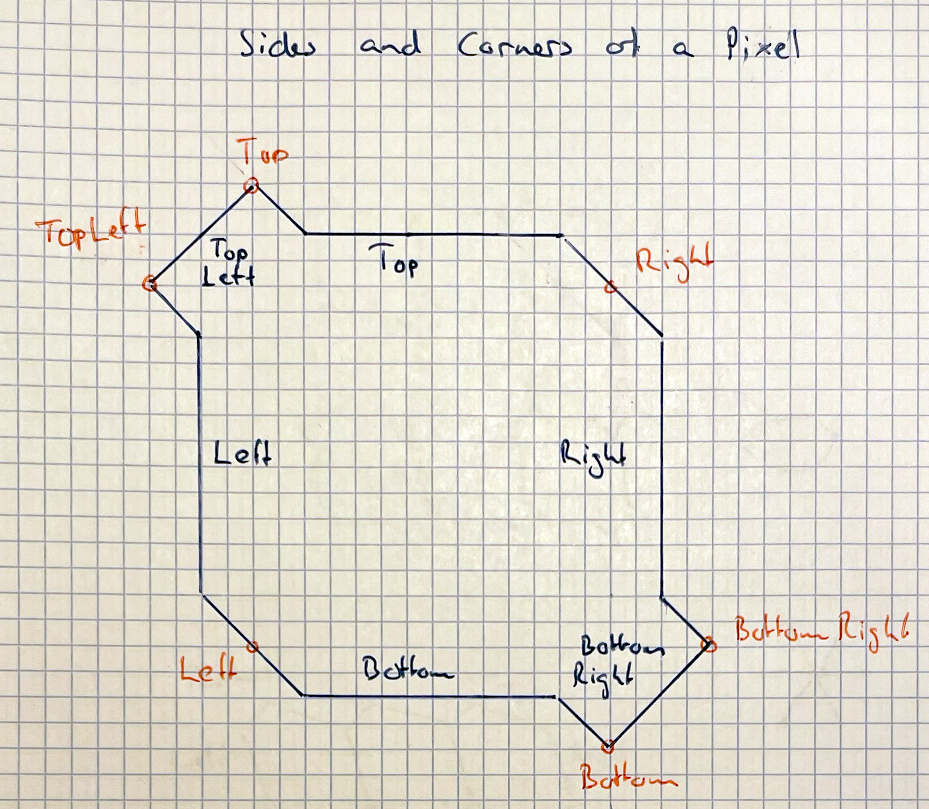 Sides and Corners of a Pixel
Top
TopLeft
Top
Left
Top
Right
Left
Right
Bottom Right
Bottom
Right
Left
Bottom
Bottom